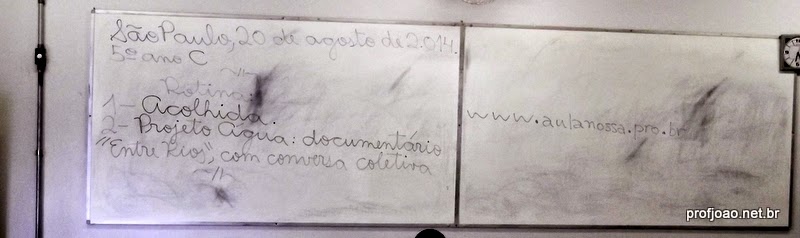 São Paulo, 20 de agosto de 2.014.
5º ano C
~//~
Rotina:
1- Acolhida.
2- Projeto Água: documentário
"Entre Rios", com conversa coletiva
~//~
www.aulanossa.pro.br
profjoao.net.br